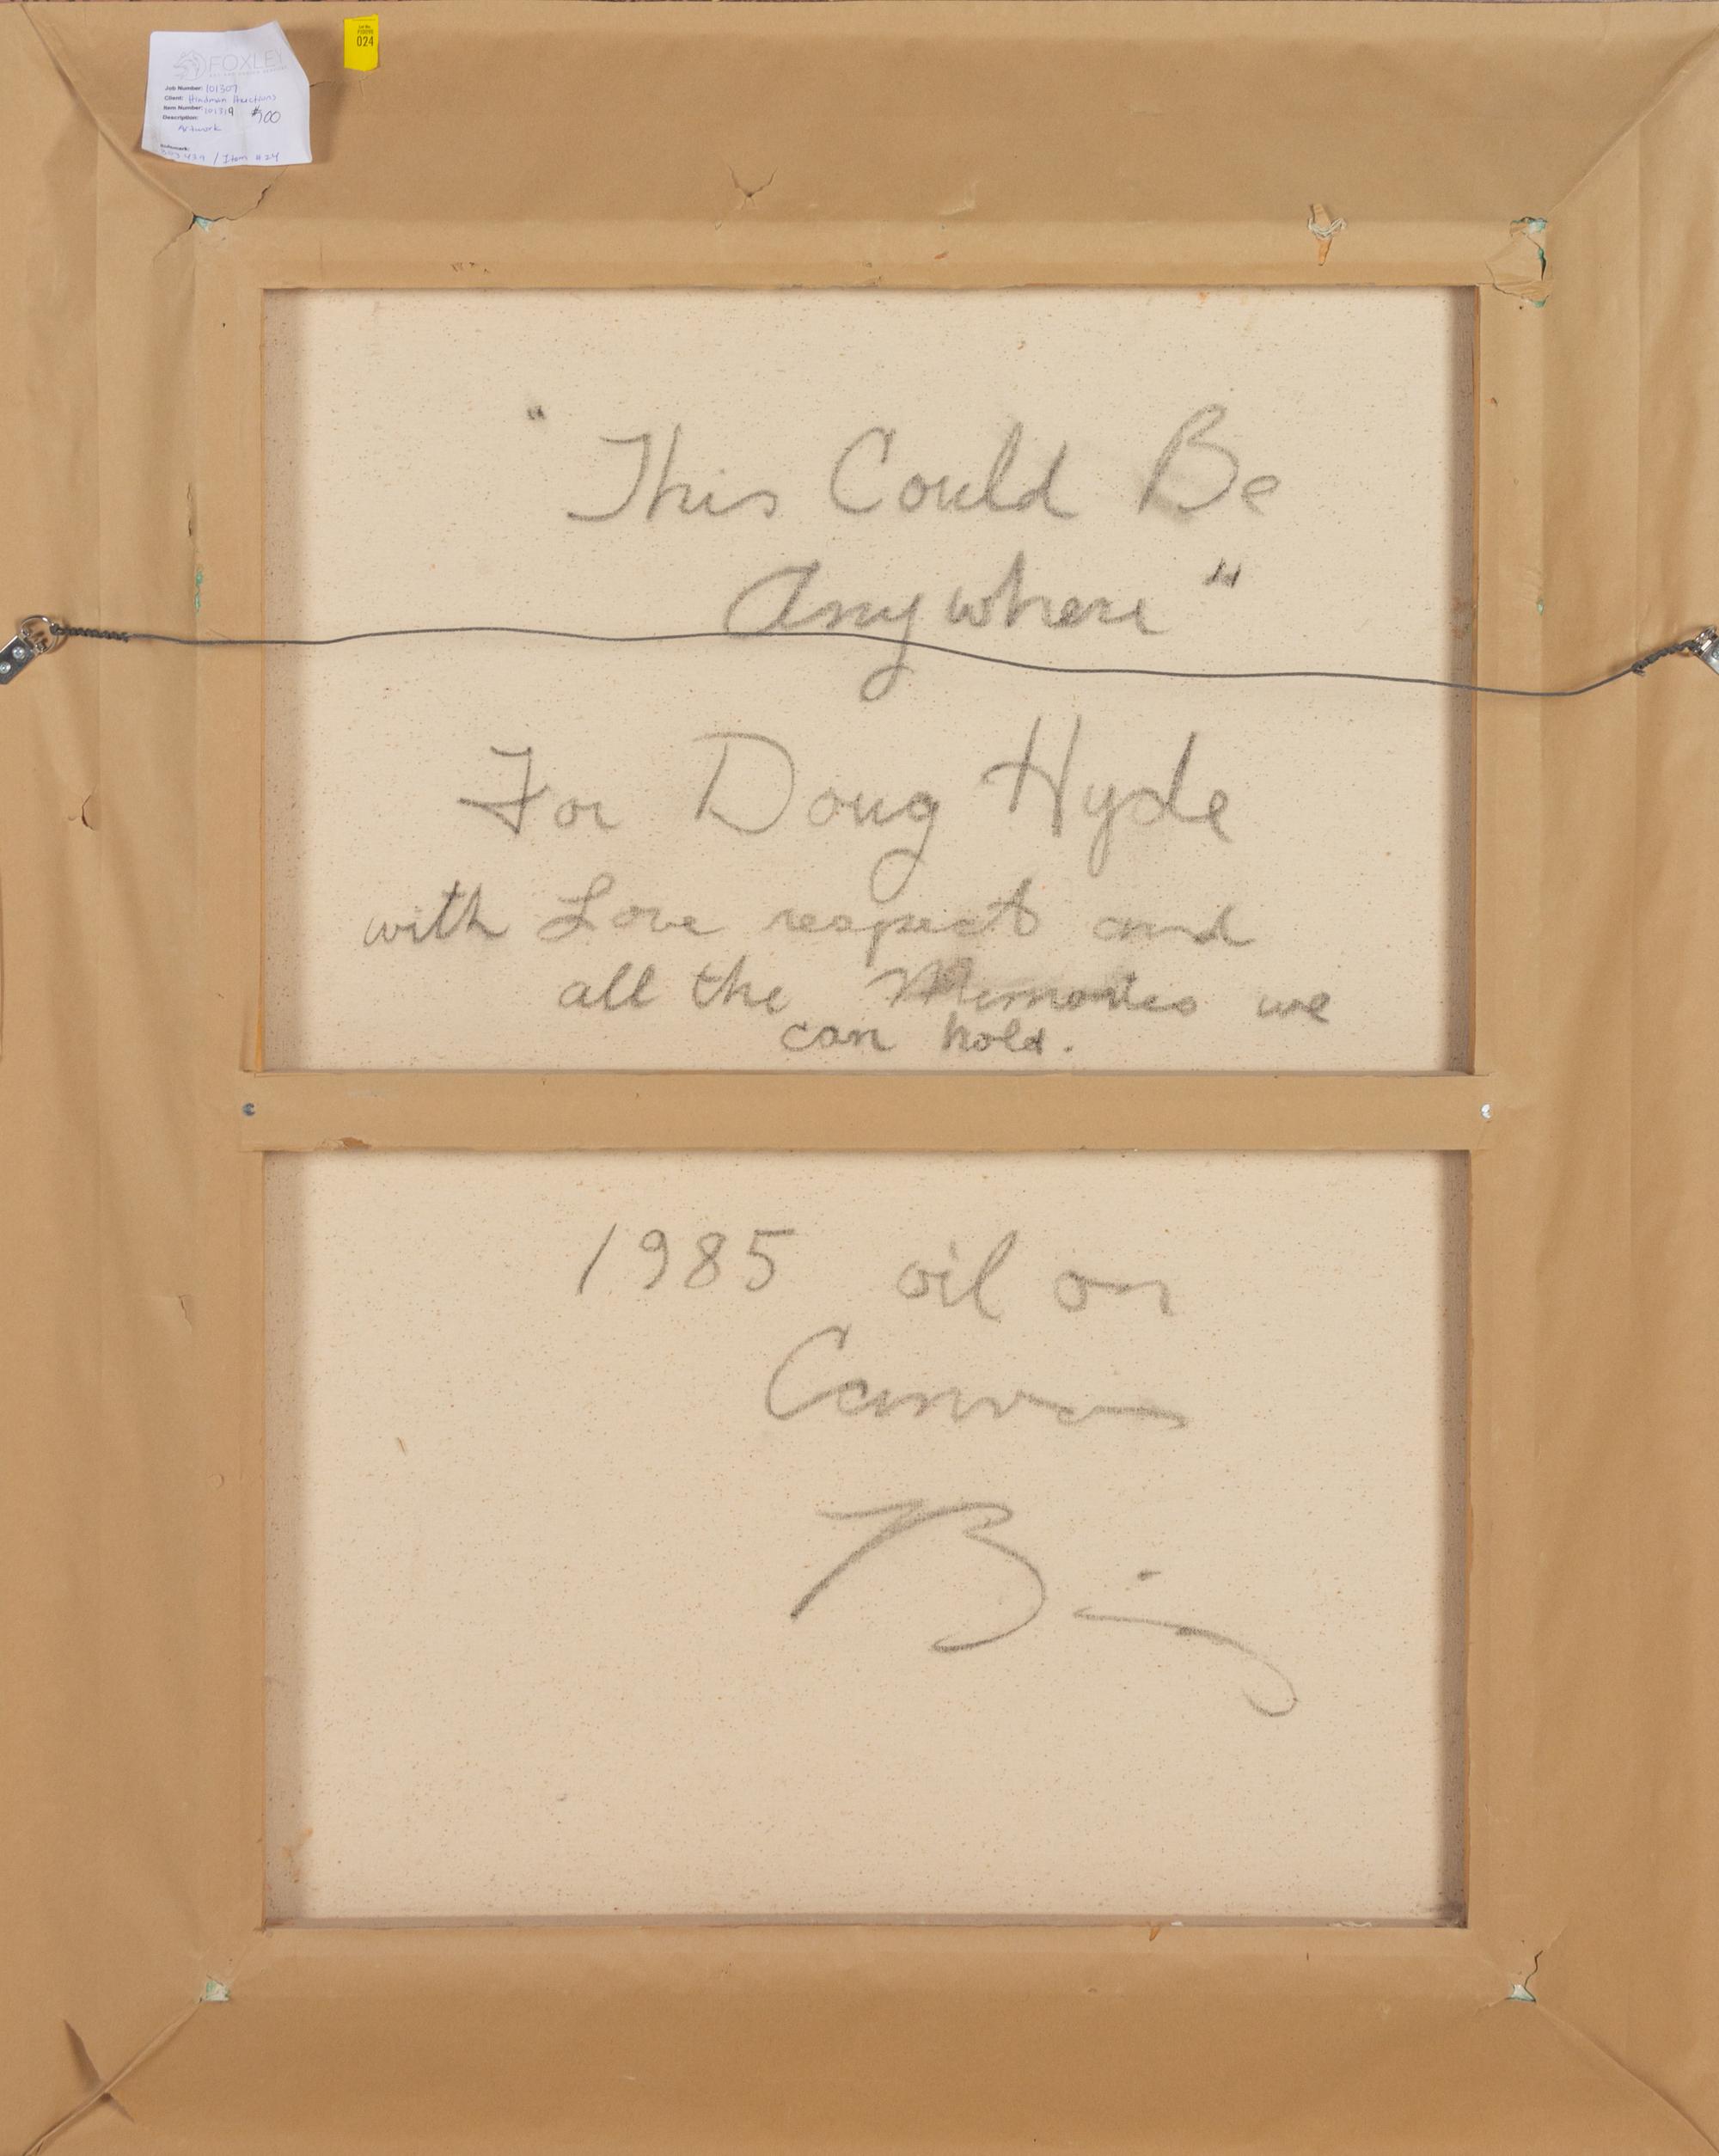 FOXLEY
Job Number: 101307
Client: Hindman Auctions
Item Number: 101319 $500
Description:
Artwork
/ Item #24
Lot No.
024
"This Could Be
Anywhere"
For Doug Hyde
with Love respect and
all the Memories we
can hold.
1985 oil on
Canvas